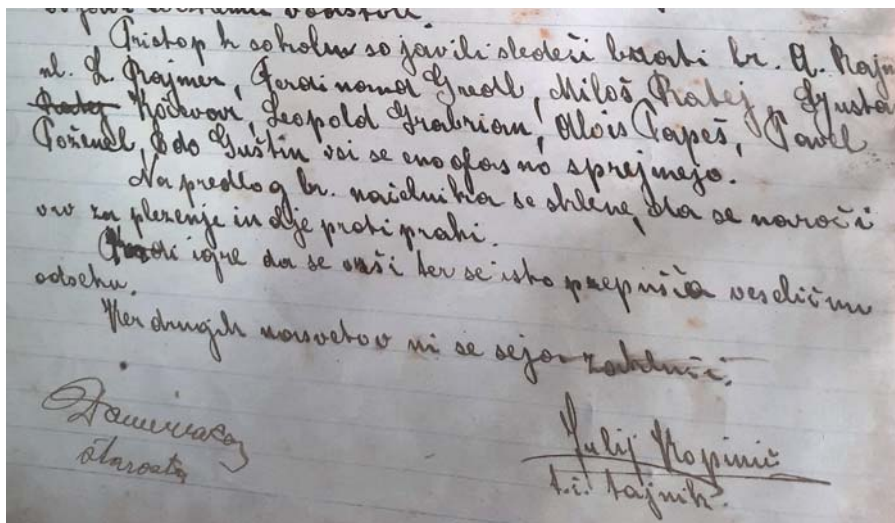 Pristop k sokolu so javili sledeči bratje br. A. Rajm
ml. L. Rajmer, Ferdinand Gredl, Miloš Ratej, Gusto
Ratej Kočevar, Leopold Grabrian, Alois Papeš, Pavel
Poženel, Edo Guštin vsi se enoglasno sprejmejo.
Na predlog br. načelnika se sklene, da se naroči
vrv za plezenje in olje proti prahi.
Radi igre da se vrši ter se isto prepušča veseličnmu
odseku.
Ker drugih nasvetov ni se seja zaključi.
starosta
Julij Kopinič
t.č. tajnik.